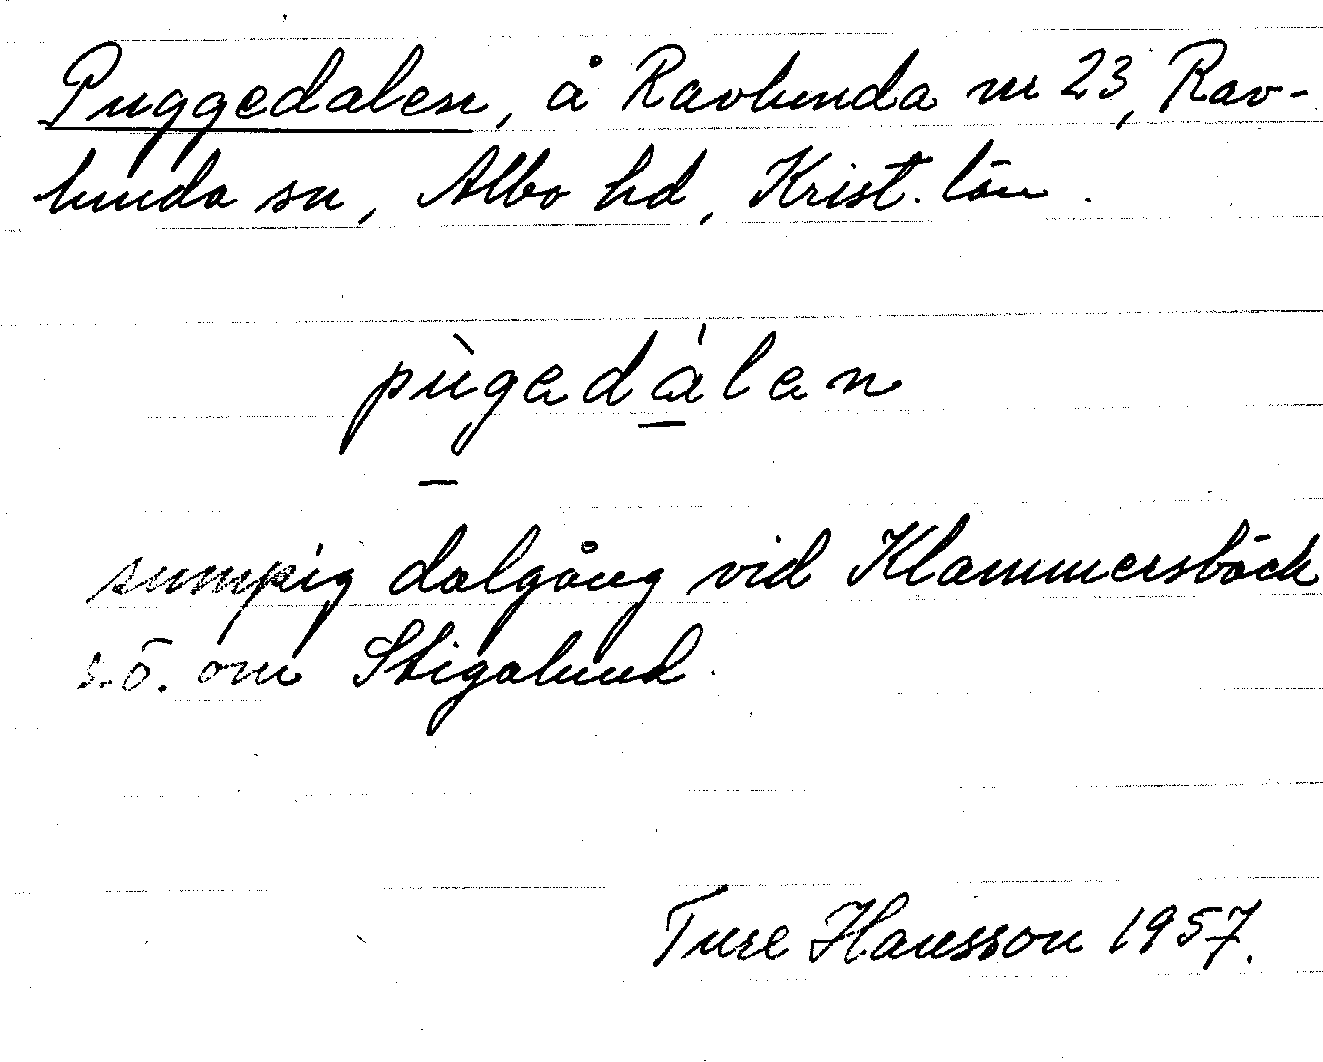 Puggedalen, å Ravlunda nr 23, Rav-
lunda sn, Albo hd, Krist. län.
pùgedálen
sumpig dalgång vid Klammersbäck
s.ö. om Stigalund.
Ture Hansson 1957.